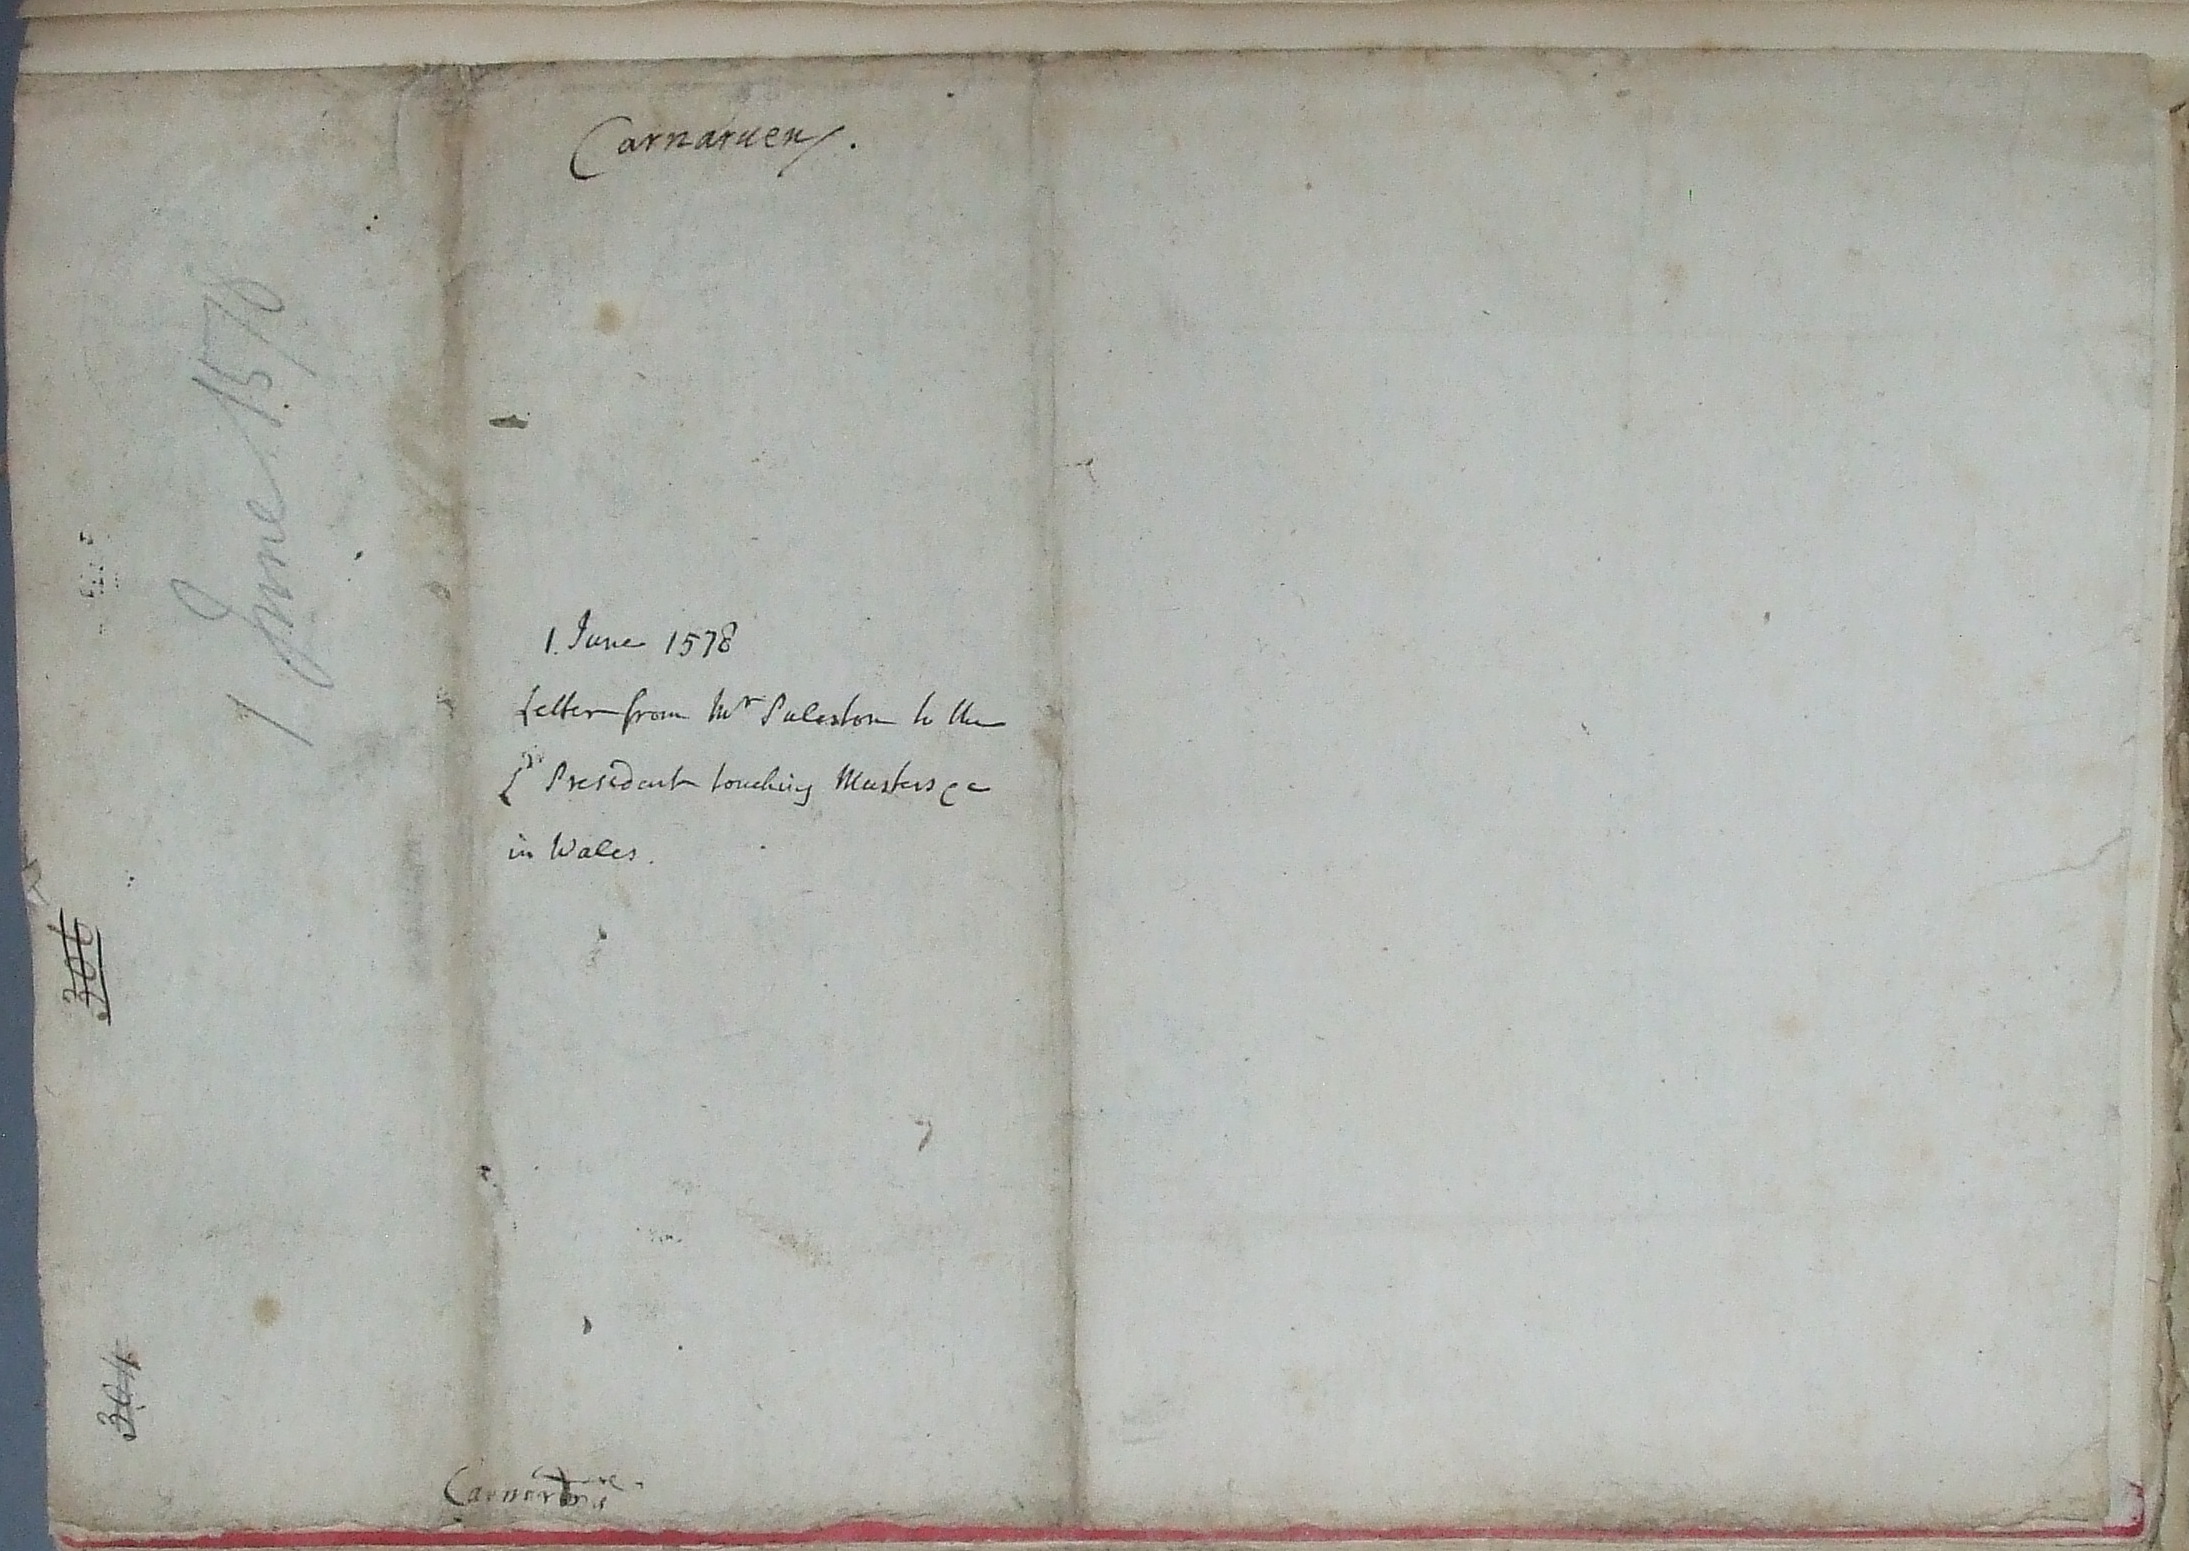 Carnaruen.
1 June 1578
1. June 1578
Letter from Mr Puleston to the
Ld President touching Musters &c
in Wales.
306
364